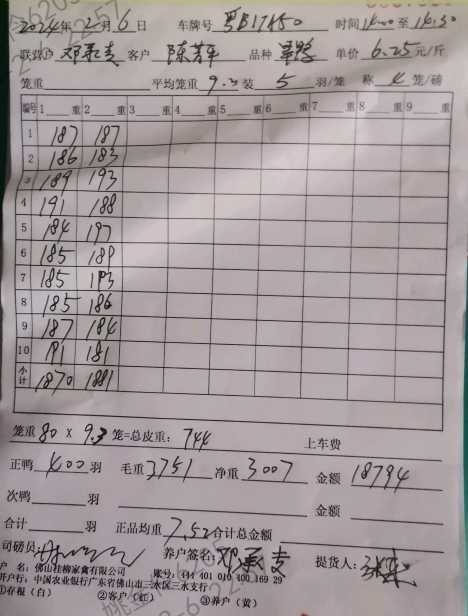 2024年2月6日 车牌号 粤B17A50 时间14:00至14:30
联养户 邓承志 客户 陈芳平 品种 单价 6.25元/斤
笼重 平均笼重 9.3 装 5 羽/笼 称 4 笼/磅
编号 1 重 2 重 3 重 4 重 5 重 6 重 7 重 8 重 9 重
1 187 187
2 186 183
3 189 193
4 191 188
5 184 197
6 185 189
7 185 193
8 185 186
9 187 184
10 191 181
小计 1870 1881
笼重 80 X 9.3 笼=总皮重: 744 上车费
正鸭 400 羽 毛重 3751 净重 3007 金额 18794
次鸭 羽 金额
合计 羽 正品均重 7.52 合计总金额
司磅员: 养户签名: 邓承志 提货人:
户 名: 佛山桂柳家禽有限公司 账号: 444 401 010 400 169 29
开户行: 中国农业银行广东省佛山市三水区三水支行
①存根（白） ②客户（红） ③养户（黄）